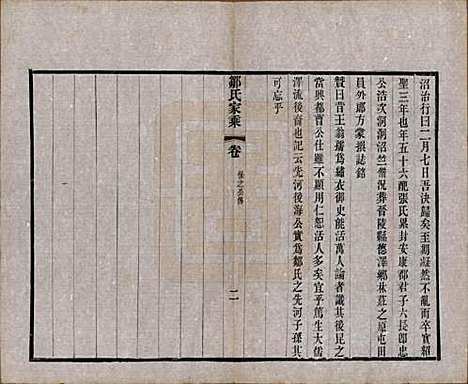 沼治行曰二月七日吾決歸矣至期凝然不亂而卒實紹
聖三年也年五十六配張氏累封安康郡君子六長卽忠
公浩次洞洄沼竺 況葬晉陵縣德澤鄉林莊之原屯田
員外郎方蒙撰誌銘
贊曰昔王翁孺爲繡衣御史能活萬人論者識其後昆之
當興都曹公仕雖不顯用仁恕活人多矣宜乎篤生大儒
澤流後裔也記云先河後海公實爲鄒氏之先河子孫其
可忘乎
鄒氏家乘
卷
之公傳
二